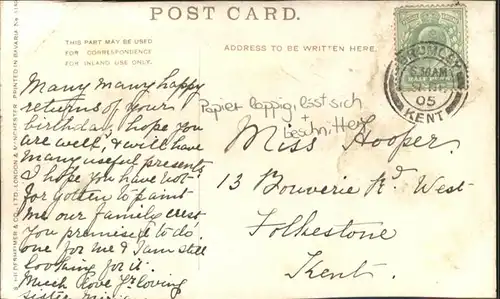 POST CARD.
THIS PART MAY BE USED
FOR CORRESPONDENCE
FOR INLAND USE ONLY.
ADDRESS TO BE WRITTEN HERE.
Many many happy
returns of your
birthday, hope you
are well, & will have
many useful presents
I hope you have not
forgotten to paint
me our family crest
you promised to do
one for me & I am still
looking for it.
Much love Yr loving
sister
Papier lappig, löst sich
+
beschnitten
Miss Hooper.
13 Bouverie Rd. West
Folkestone
Kent.
BROMLEY
AM
05
KENT
HALF PENNY
& CO., LTD., LONDON & MANCHESTER. PRINTED IN BAVARIA